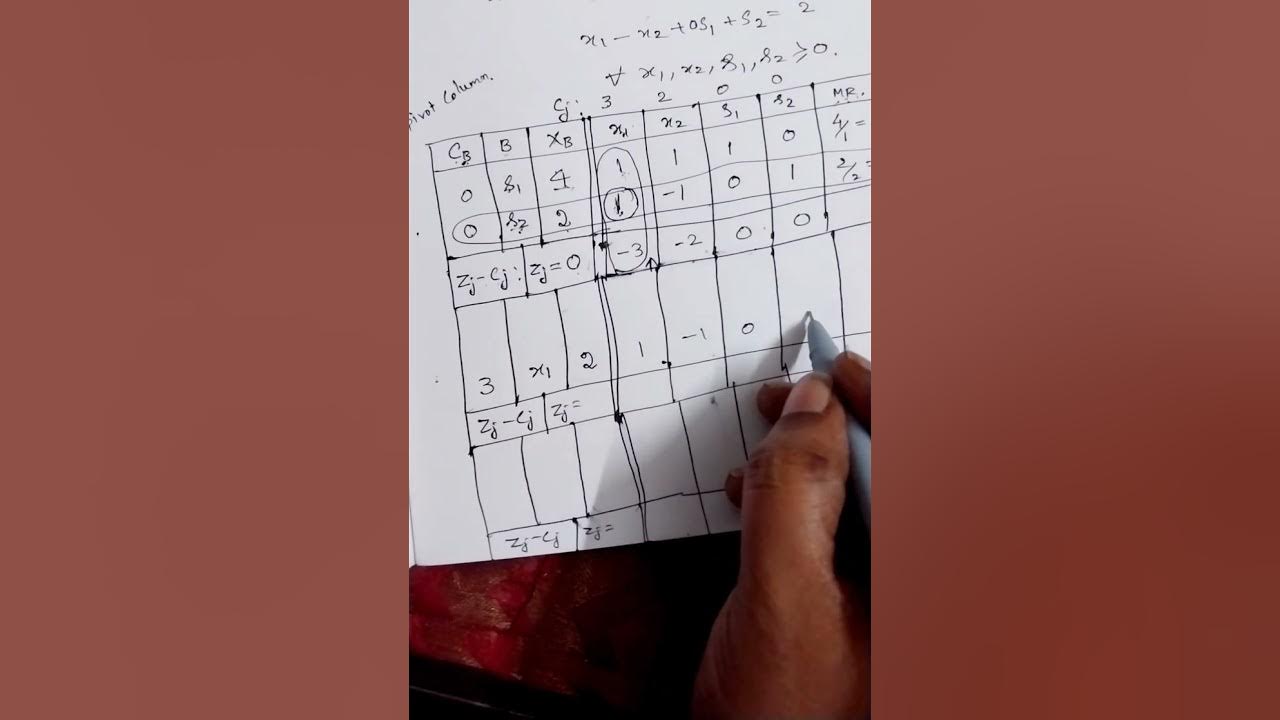 x₁ - x₂ + 0S₁ + S₂ = 2
∀ x₁, x₂, S₁, S₂ ≥ 0.
Pivot Column.
Cj: 3 2 0 0
C_B B X_B x₁ x₂ S₁ S₂ MR.
0 S₁ 4 1 1 1 0 4/1 =
0 S₂ 2 1 -1 0 1 2/2 =
Zj-Cj: Zj=0 -3 -2 0 0
3 x₁ 2 1 -1 0
Zj-Cj Zj=
Zj-Cj Zj=